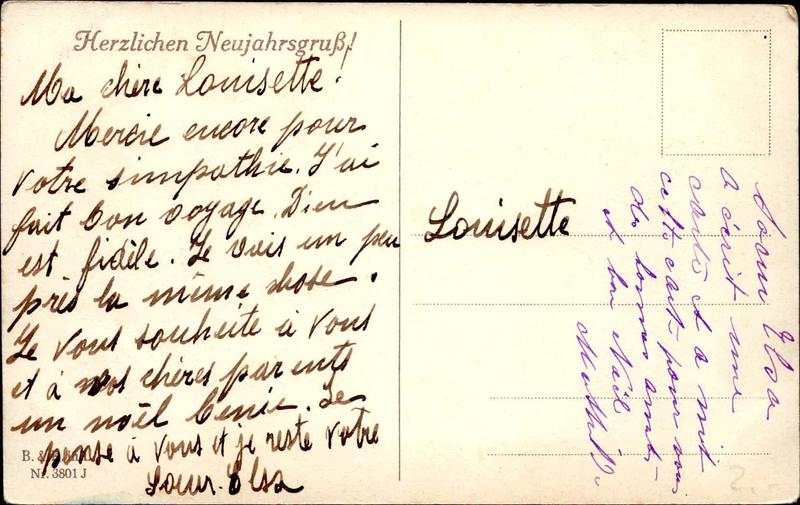 Herzlichen Neujahrsgruß!
Ma chère Louisette!
Mercie encore pour
votre simpathie. J'ai
fait bon voyage. Dieu
est fidèle. Je vais un peu
près la même chose.
Je vous souhaite à vous
et à vos chères parents
un noël benie. Je
pense à vous et je reste votre
Soeur. Elsa
B. &
Nr. 3801 J
Louisette
Soeur Elsa
a écrit une
carte et a mit
cette carte pour vous
de bonnes
et bon Noël
2.-